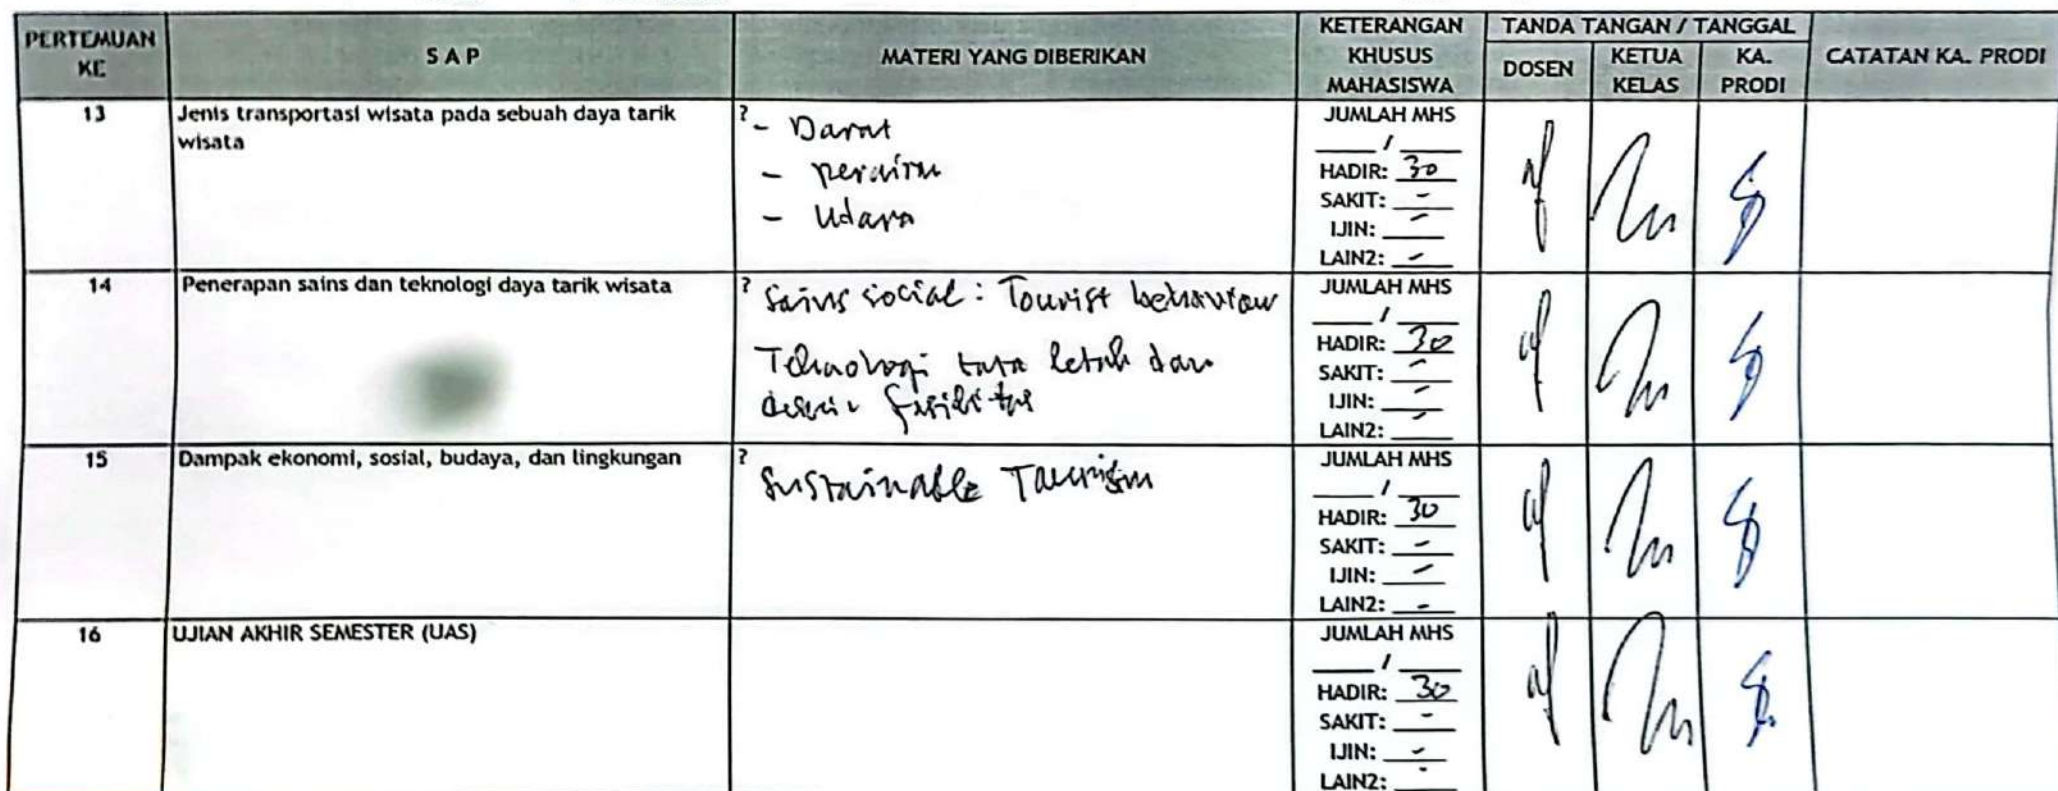 PERTEMUAN KE
S A P
MATERI YANG DIBERIKAN
KETERANGAN KHUSUS MAHASISWA
TANDA TANGAN / TANGGAL
DOSEN
KETUA KELAS
KA. PRODI
CATATAN KA. PRODI
13
Jenis transportasi wisata pada sebuah daya tarik
wisata
? - Darat
- perairan
- Udara
JUMLAH MHS
/
HADIR: 30
SAKIT: -
IJIN: -
LAIN2: -
14
Penerapan sains dan teknologi daya tarik wisata
? Sains social : Tourist behaviour
Teknologi tata letak dan
desain fasilitas
JUMLAH MHS
/
HADIR: 30
SAKIT: -
IJIN: -
LAIN2: -
15
Dampak ekonomi, sosial, budaya, dan lingkungan
?
Sustainable Tourism
JUMLAH MHS
/
HADIR: 30
SAKIT: -
IJIN: -
LAIN2: -
16
UJIAN AKHIR SEMESTER (UAS)
JUMLAH MHS
/
HADIR: 30
SAKIT: -
IJIN: -
LAIN2: -